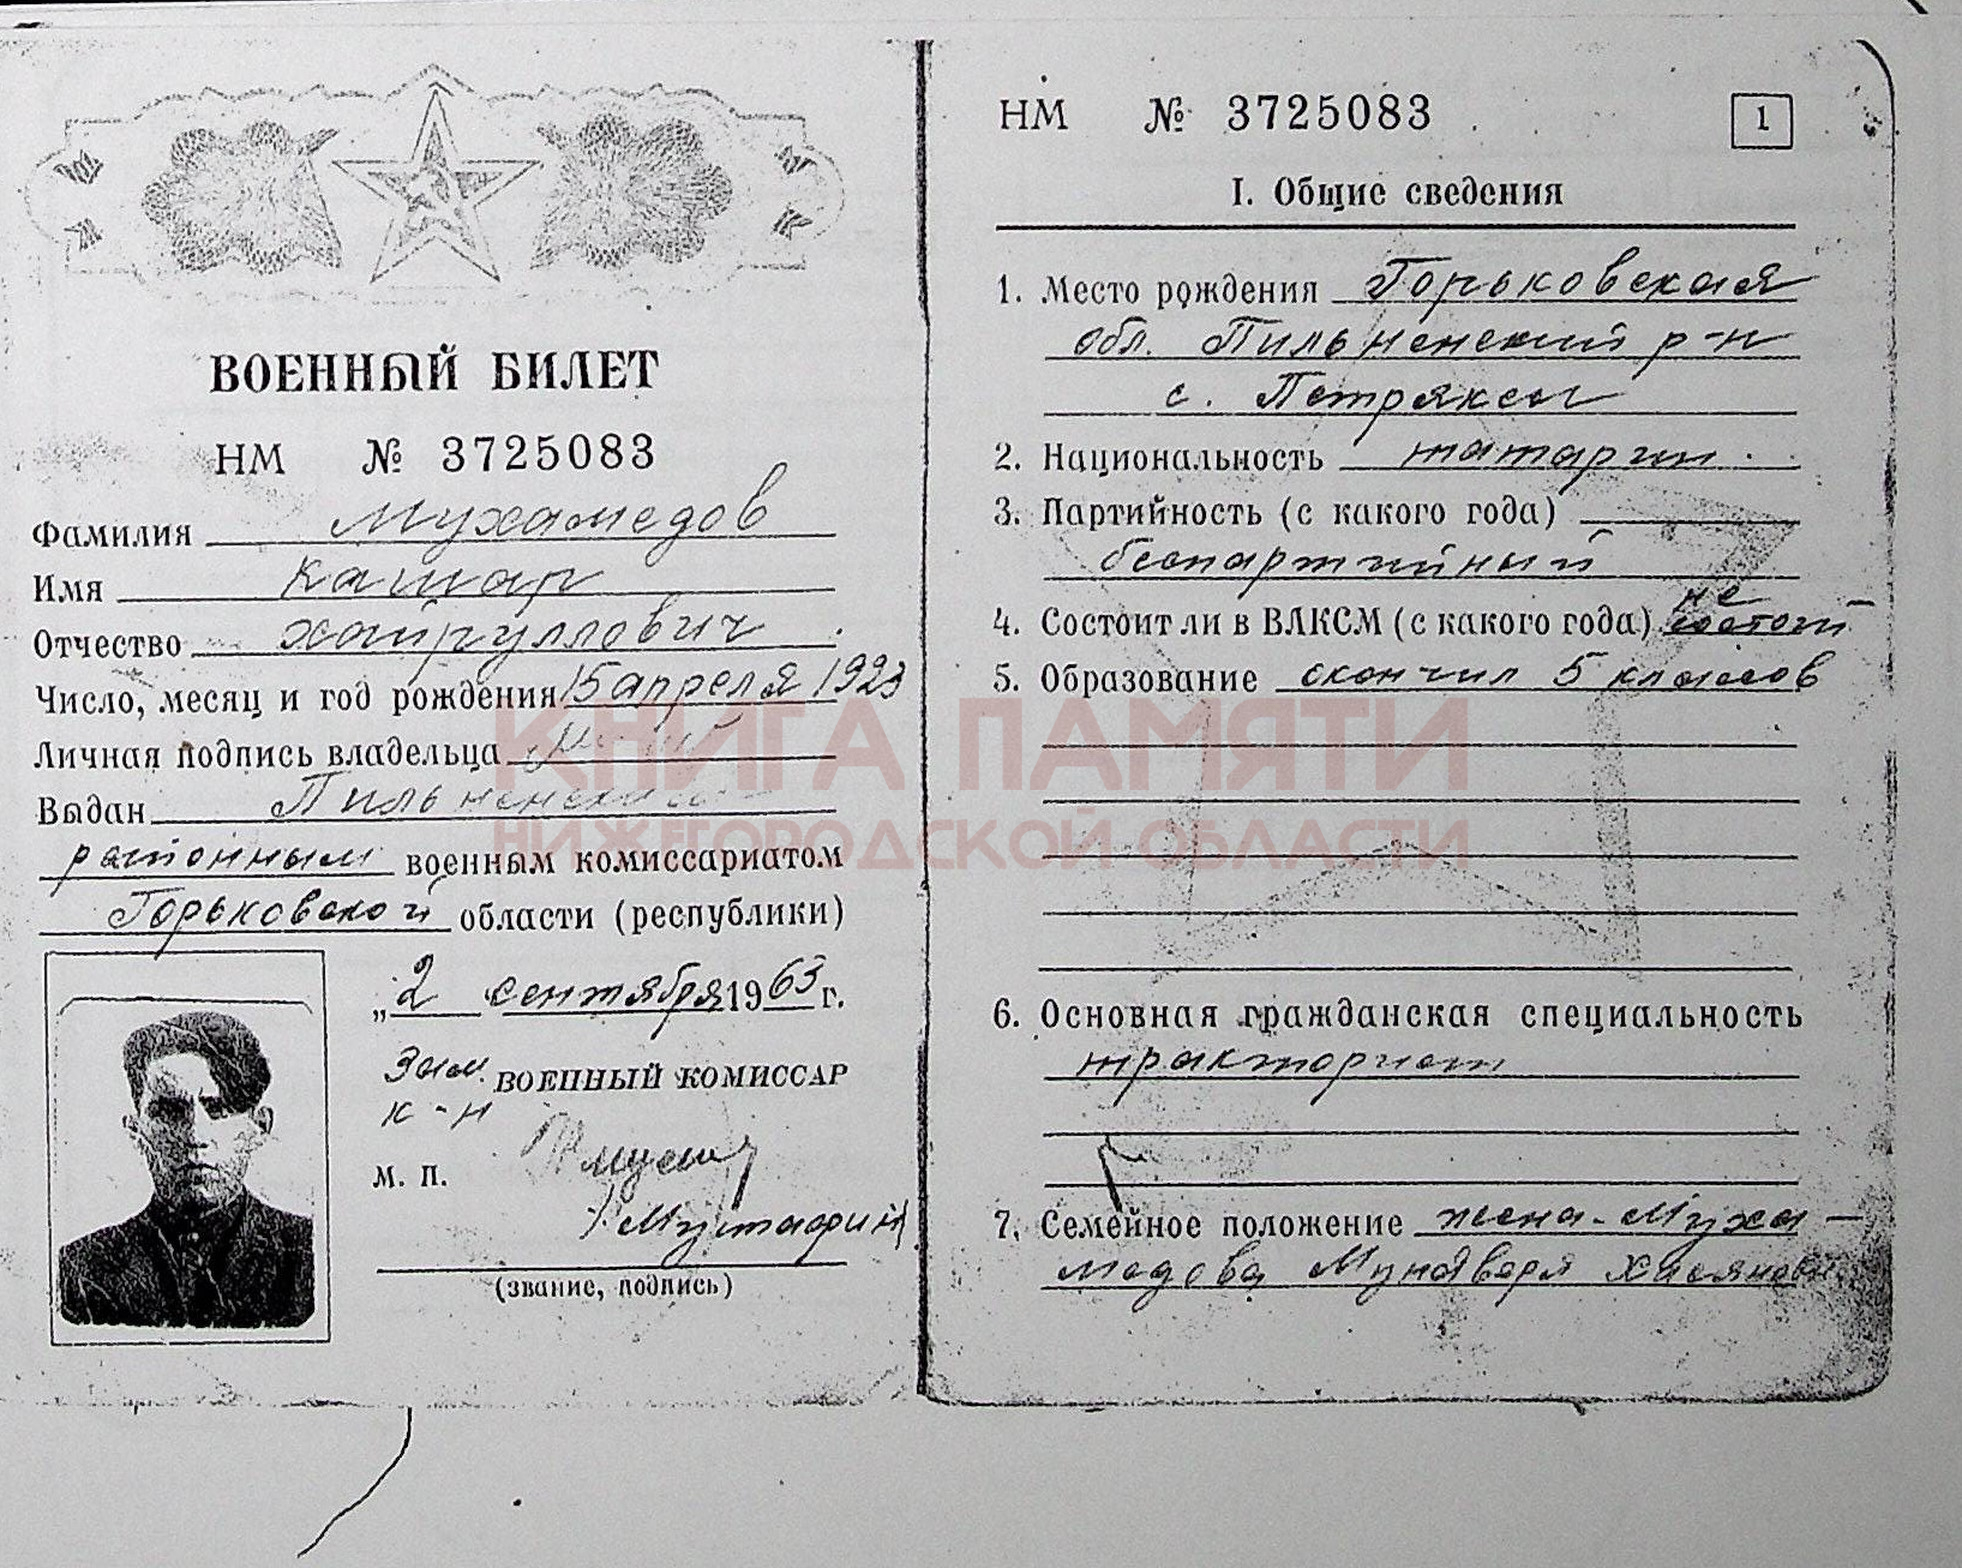 ВОЕННЫЙ БИЛЕТ
НМ № 3725083
Фамилия Мухамедов
Имя Кашар
Отчество Хайруллович
Число, месяц и год рождения 15 апреля 1923
Личная подпись владельца
Выдан Пильненским
районным военным комиссариатом
Горьковской области (республики)
„2 сентября 1963 г.
Зам. ВОЕННЫЙ КОМИССАР
к-н
М. П.
/Мустафин/
(звание, подпись)
НМ № 3725083
1
I. Общие сведения
1. Место рождения Горьковская
обл. Пильненский р-н
с. Петряксы
2. Национальность татарин
3. Партийность (с какого года)
беспартийный
4. Состоит ли в ВЛКСМ (с какого года) не
состоит
5. Образование окончил 5 классов
6. Основная гражданская специальность
тракторист
7. Семейное положение жена - Муха-
медова Муняверя
КНИГА ПАМЯТИ
НИЖЕГОРОДСКОЙ ОБЛАСТИ